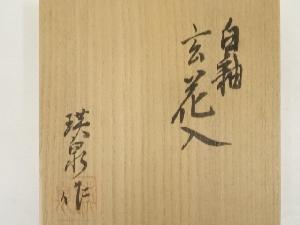 白釉
玄花入
瑛泉作